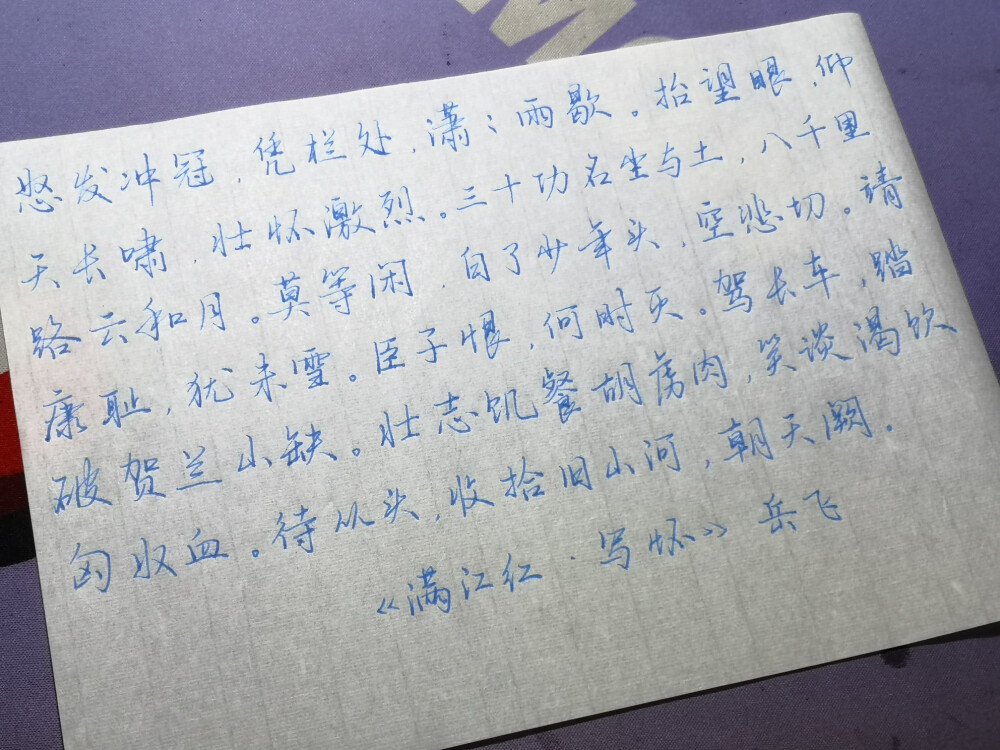 怒发冲冠，凭栏处，潇〻雨歇。抬望眼，仰
天长啸，壮怀激烈。三十功名尘与土，八千里
路云和月。莫等闲，白了少年头，空悲切。请
康耻，犹未雪。臣子恨，何时灭。驾长车，踏
破贺兰山缺。壮志饥餐胡虏肉，笑谈渴饮
匈奴血。待从头，收拾旧山河，朝天阙。
《满江红·写怀》岳飞